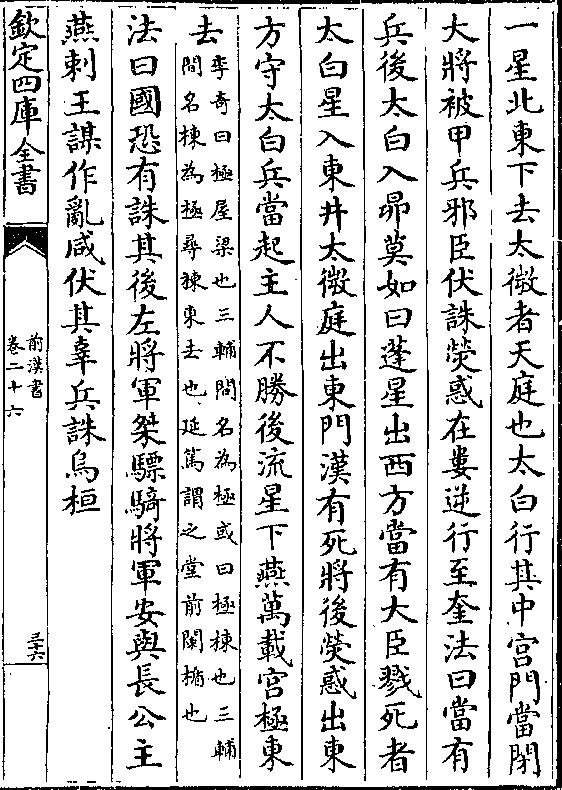 一星北東下去太微者天庭也太白行其中宫門當閉
大將被甲兵邪臣伏誅熒惑在婁逆行至奎法曰當有
兵後太白入昴莫如曰蓬星出西方當有大臣戮死者
太白星入東井太微庭出東門漢有死將後熒惑出東
方守太白兵當起主人不勝後流星下燕萬載宫極東
去李奇曰極屋梁也三輔間名為極或曰極棟也三輔
間名棟為極尋棟東去也延篤謂之堂前闌楯也
法曰國恐有誅其後左將軍桀驃騎將軍安與長公主
燕剌王謀作亂咸伏其辜兵誅烏桓
欽定四庫全書
前漢書
卷二十六
三十六